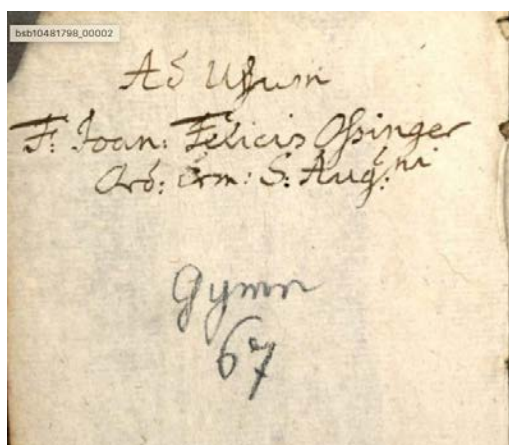 bsb10481798_00002
Ad Usum
F: Joan: Felicis Ossinger
Ord: Erm: S: Aug:ni
Gymn
67